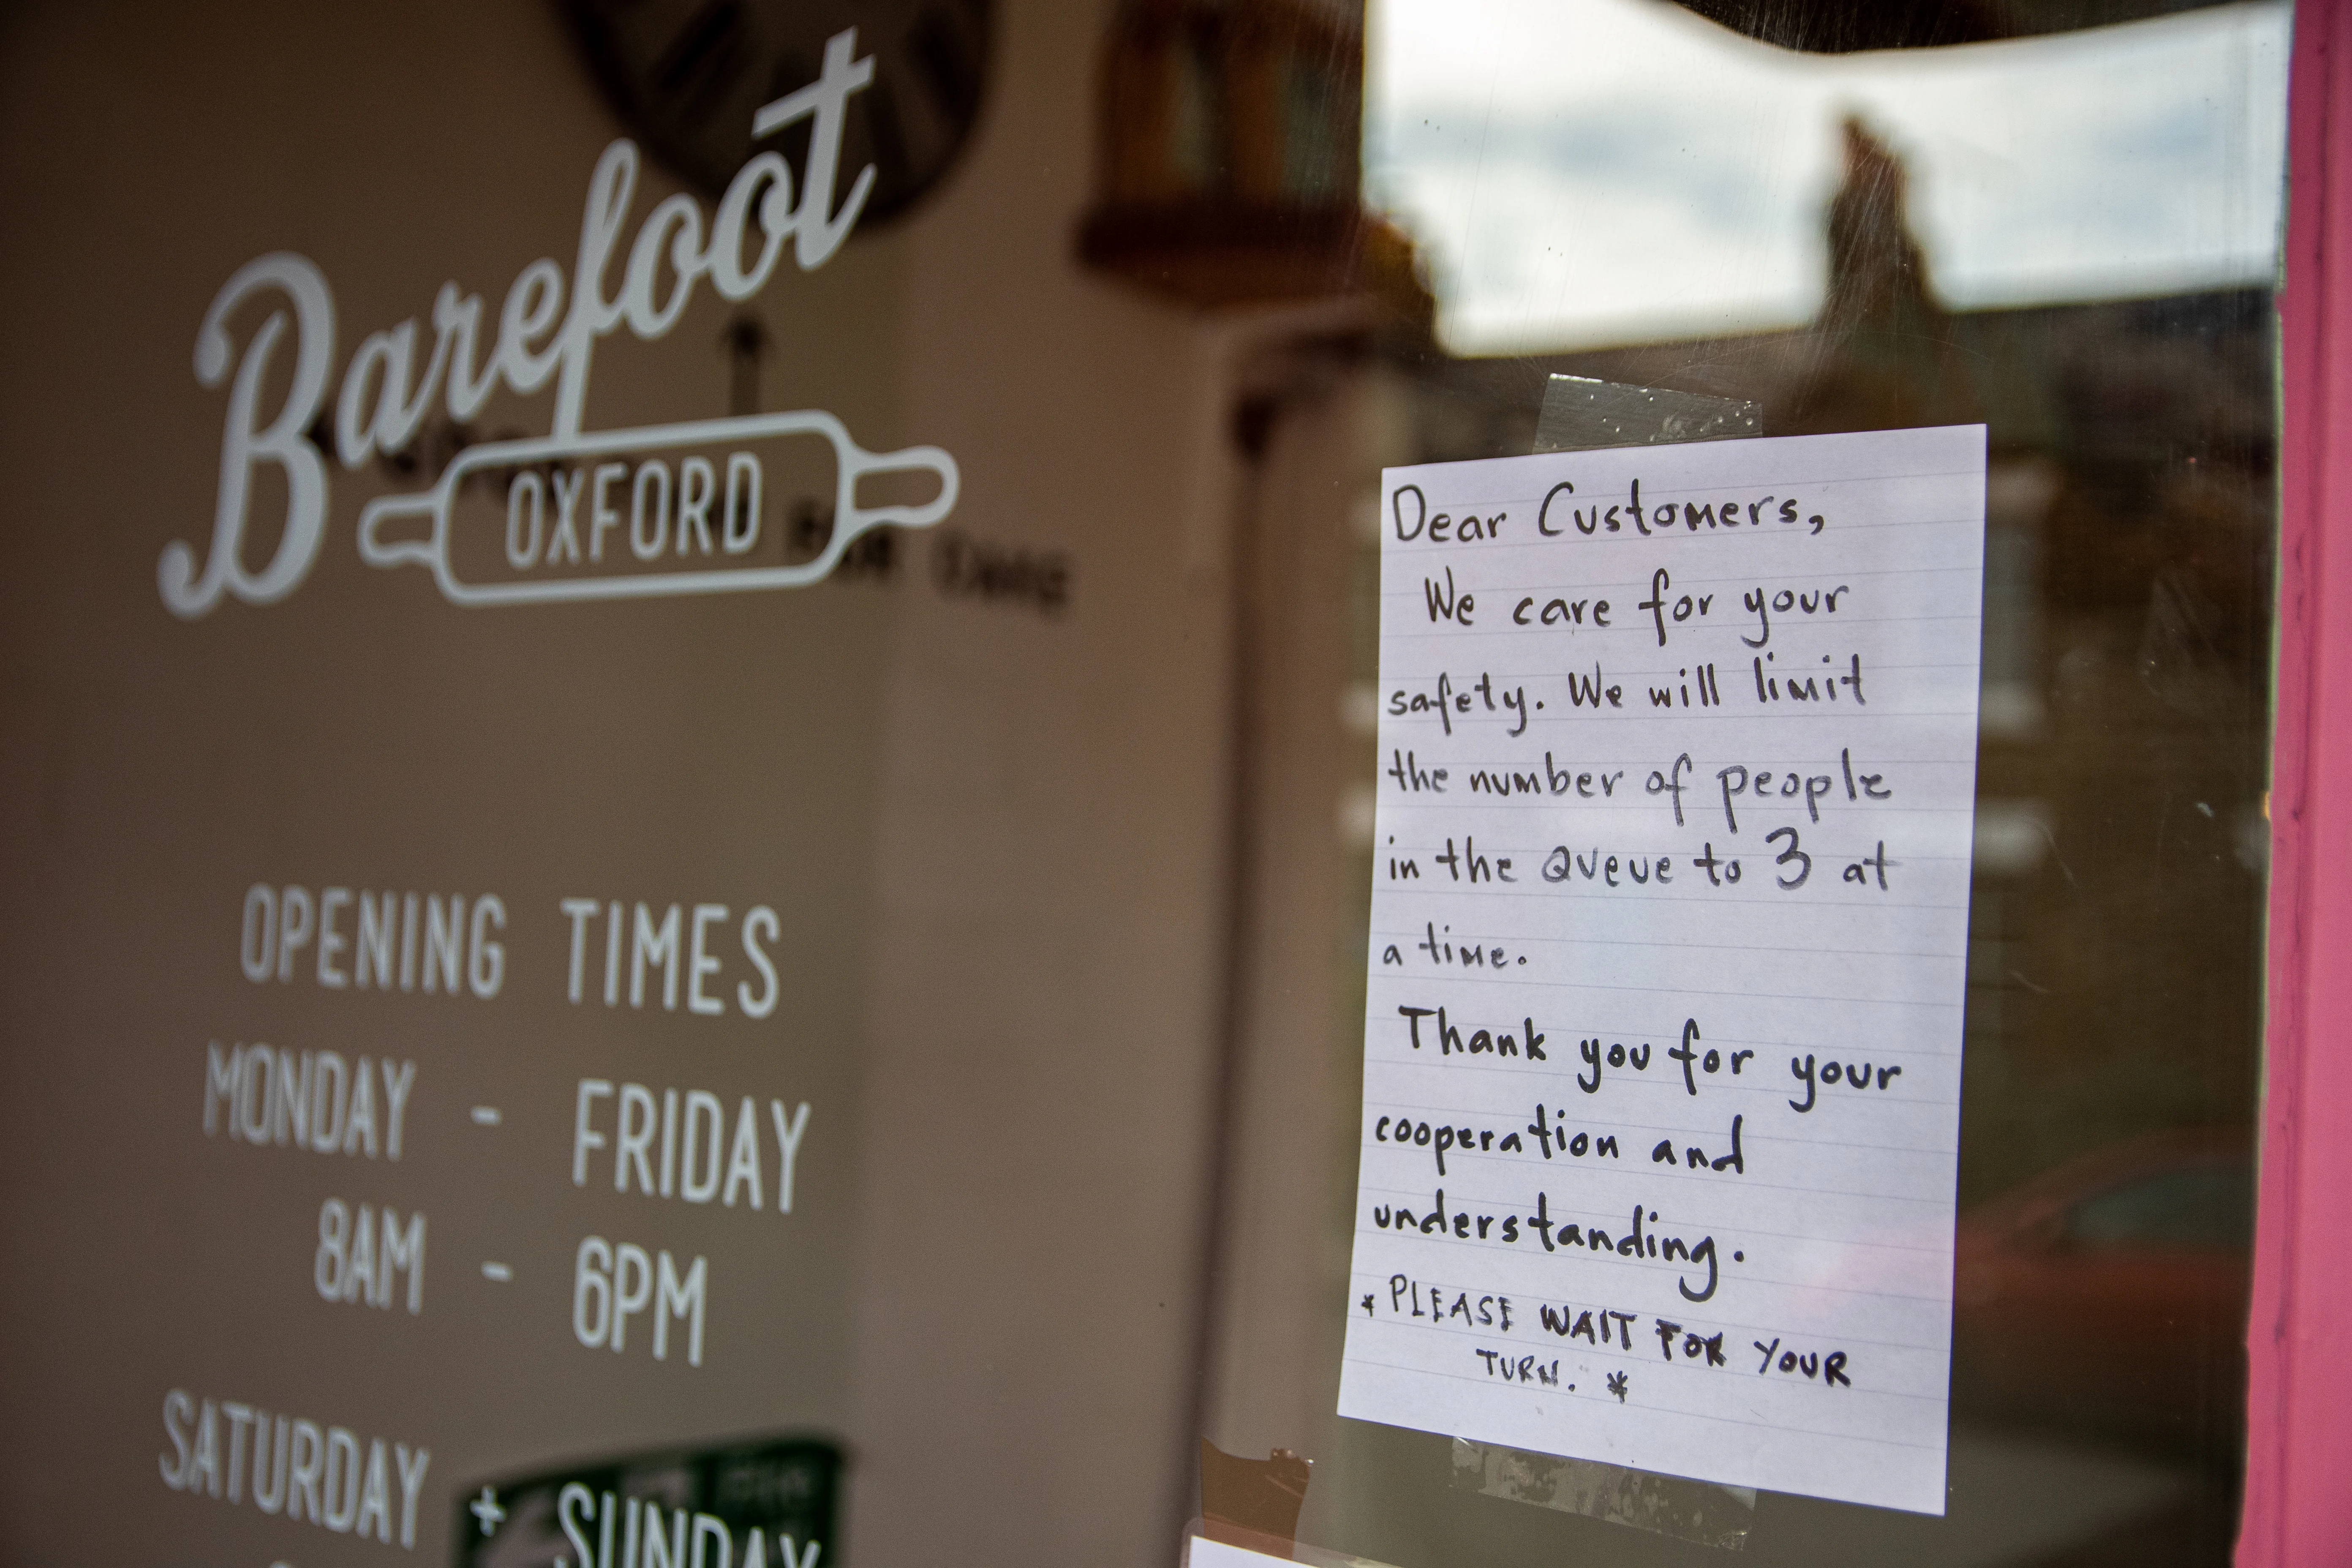 Barefoot
OXFORD
OPENING TIMES
MONDAY - FRIDAY
8AM - 6PM
SATURDAY + SUNDAY
Dear Customers,
We care for your
safety. We will limit
the number of people
in the Queue to 3 at
a time.
Thank you for your
cooperation and
understanding.
* PLEASE WAIT FOR YOUR
TURN. *